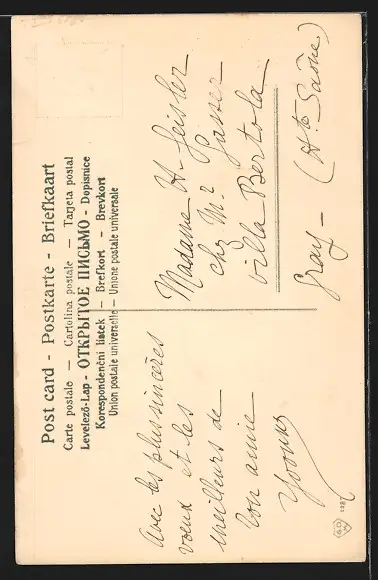 Post card - Postkarte - Briefkaart
Carte postale — Cartolina postale — Tarjeta postal
Levelező-Lap - ОТКРЫТОЕ ПИСЬМО - Dopisnice
Korespondenční lístek — Brefkort - Brevkort
Union postale universelle — Unione postale universale
Avec les plus sincères
vœux et les
meilleurs de
ton amie
Yvonne
Madame H. Geisler
chez Mr Gasser
Villa Bertola
Gray — (Hte Saône)